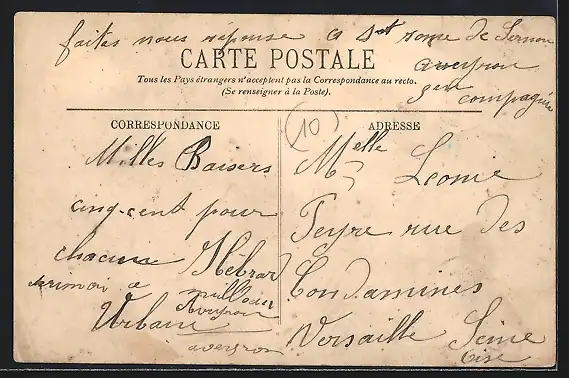 faites nous réponse a St rome de Cernon
CARTE POSTALE
aveyron
Tous les Pays étrangers n'acceptent pas la Correspondance au recto.
(Se renseigner à la Poste).
3eu compagnie
CORRESPONDANCE
Milles Baisers
cinq-cent pour
chacune Hébrar
a millau
Aveyron
Urbain
aveyron
10
ADRESSE
Melle Leonie
Teyre rue des
Condamines
Versaille Seine
Oise